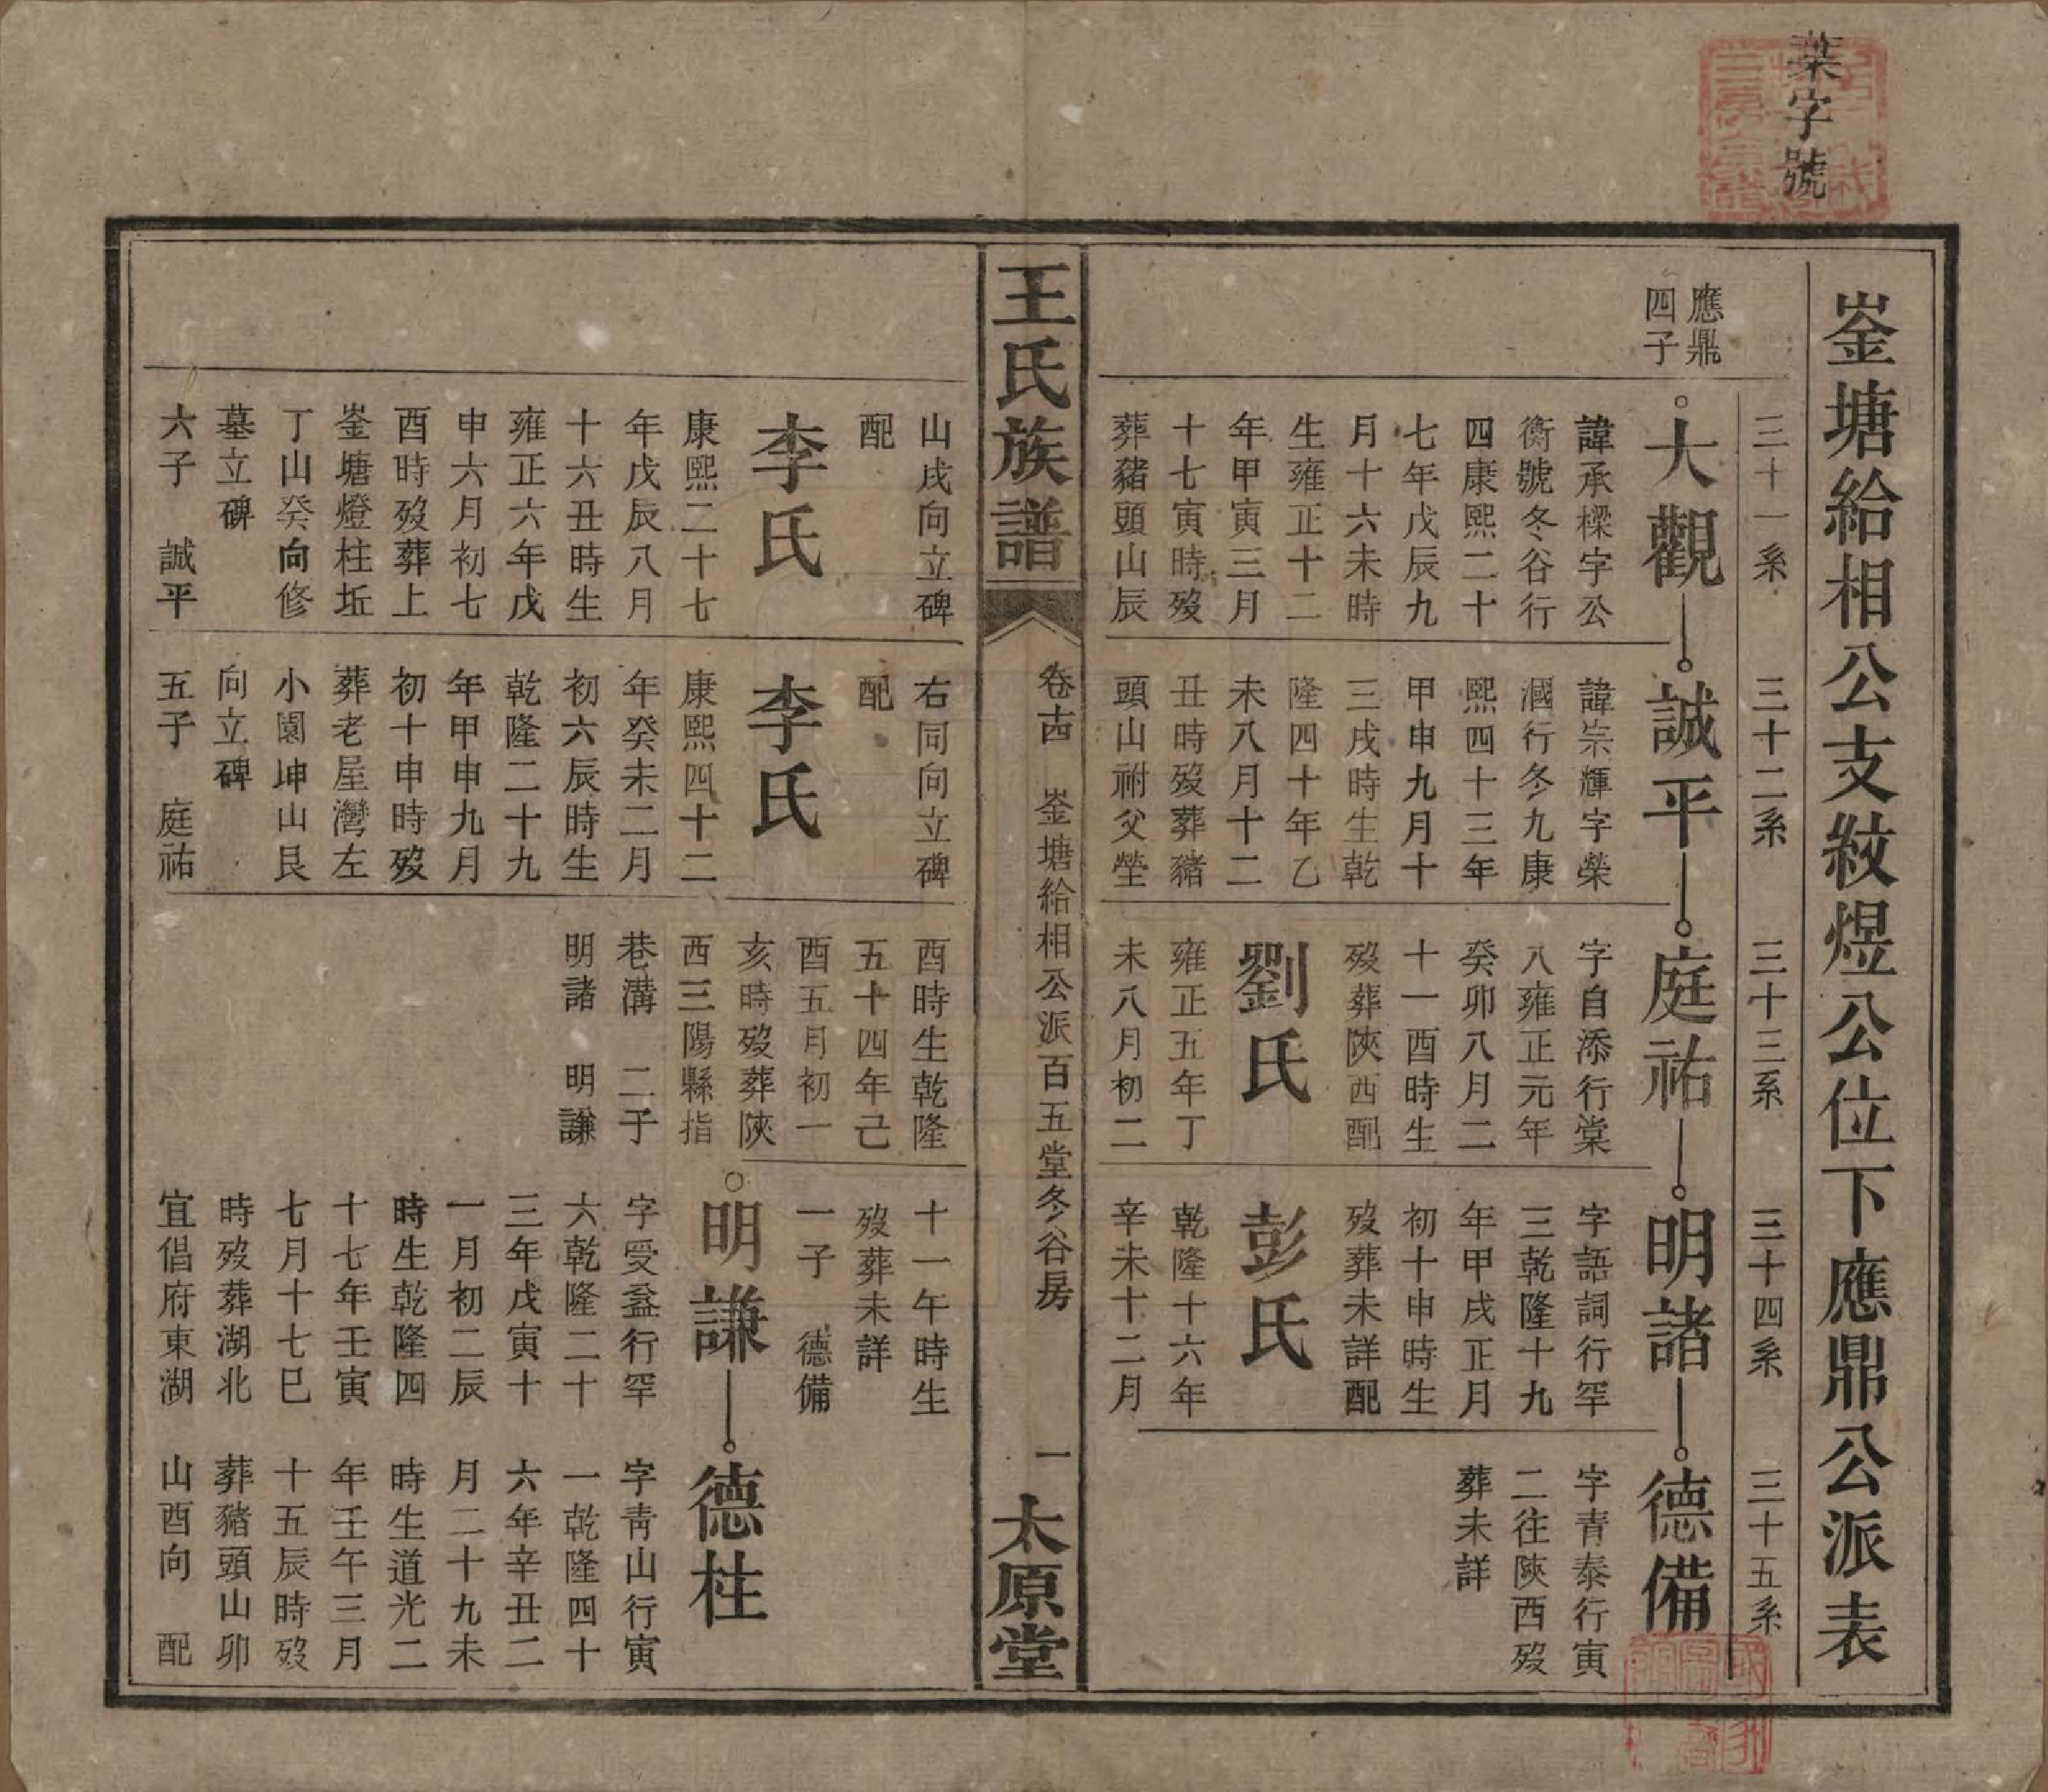 葉字號
崟塘給相公支紋煜公位下應鼎公派表
三十一系
三十二系
三十三系
三十四系
三十五系
應鼎
四子
大觀
諱承樑字公
衡號冬谷行
四康熙二十
七年戊辰九
月十六未時
生雍正十二
年甲寅三月
十七寅時歿
葬豬頭山辰
山戌向立碑
配
李氏
康熙二十七
年戊辰八月
十六丑時生
雍正六年戊
申六月初七
酉時歿葬上
崟塘燈柱坵
丁山癸向修
墓立碑
六子 誠平
誠平
諱崇輝字榮
漍行冬九康
熙四十三年
甲申九月十
三戌時生乾
隆四十年乙
未八月十二
丑時歿葬豬
頭山祔父塋
右同向立碑
配
李氏
康熙四十二
年癸未二月
初六辰時生
乾隆二十九
年甲申九月
初十申時歿
葬老屋灣左
小園坤山艮
向立碑
五子 庭祐
庭祐
字自添行棠
八雍正元年
癸卯八月二
十一酉時生
歿葬陝西配
劉氏
雍正五年丁
未八月初二
酉時生乾隆
五十四年己
酉五月初一
亥時歿葬陝
西三陽縣指
巷溝 二子
明諸 明謙
明諸
字語詞行罕
三乾隆十九
年甲戌正月
初十申時生
歿葬未詳配
彭氏
乾隆十六年
辛未十二月
十一午時生
歿葬未詳
一子 德備
明謙
字受益行罕
六乾隆二十
三年戊寅十
一月初二辰
時生乾隆四
十七年壬寅
七月十七巳
時歿葬湖北
宜倡府東湖
德備
字青泰行寅
二往陝西歿
葬未詳
德柱
字靑山行寅
一乾隆四十
六年辛丑二
月二十九未
時生道光二
年壬午三月
十五辰時歿
葬豬頭山卯
山酉向 配
王氏族譜
卷十四 崟塘給相公派百五堂冬谷房
一
太原堂